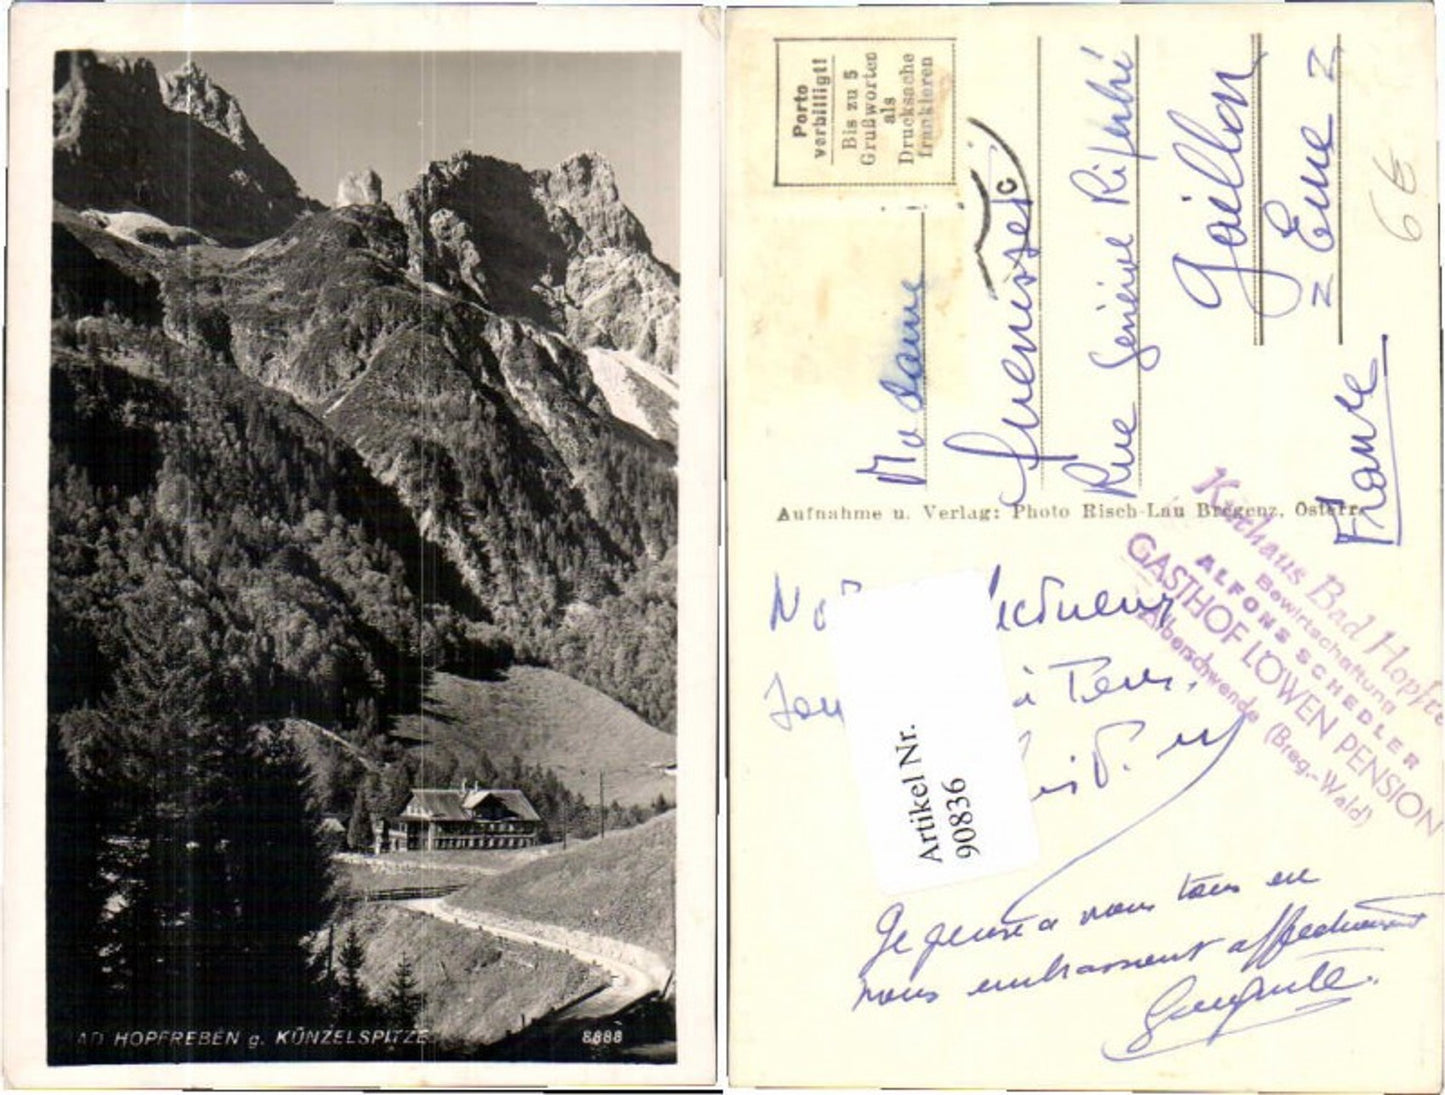 AD HOPFREBEN g. KÜNZELSPITZE
8888
Porto
verbilligt!
Bis zu 5
Grußworten
als
Drucksache
frankieren
Madame
Rue Générale
Gaillon
= Eure =
France
6€
Aufnahme u. Verlag: Photo Risch-Lau Bregenz, Österr.
Kurhaus Bad Hopfre
Bewirtschaftung
ALFONS SCHEDLER
GASTHOF LÖWEN PENSION
Alberschwende (Breg.-Wald)
Artikel Nr.
90836
à
Je pense à vous tous en
vous embrassant affectueusement